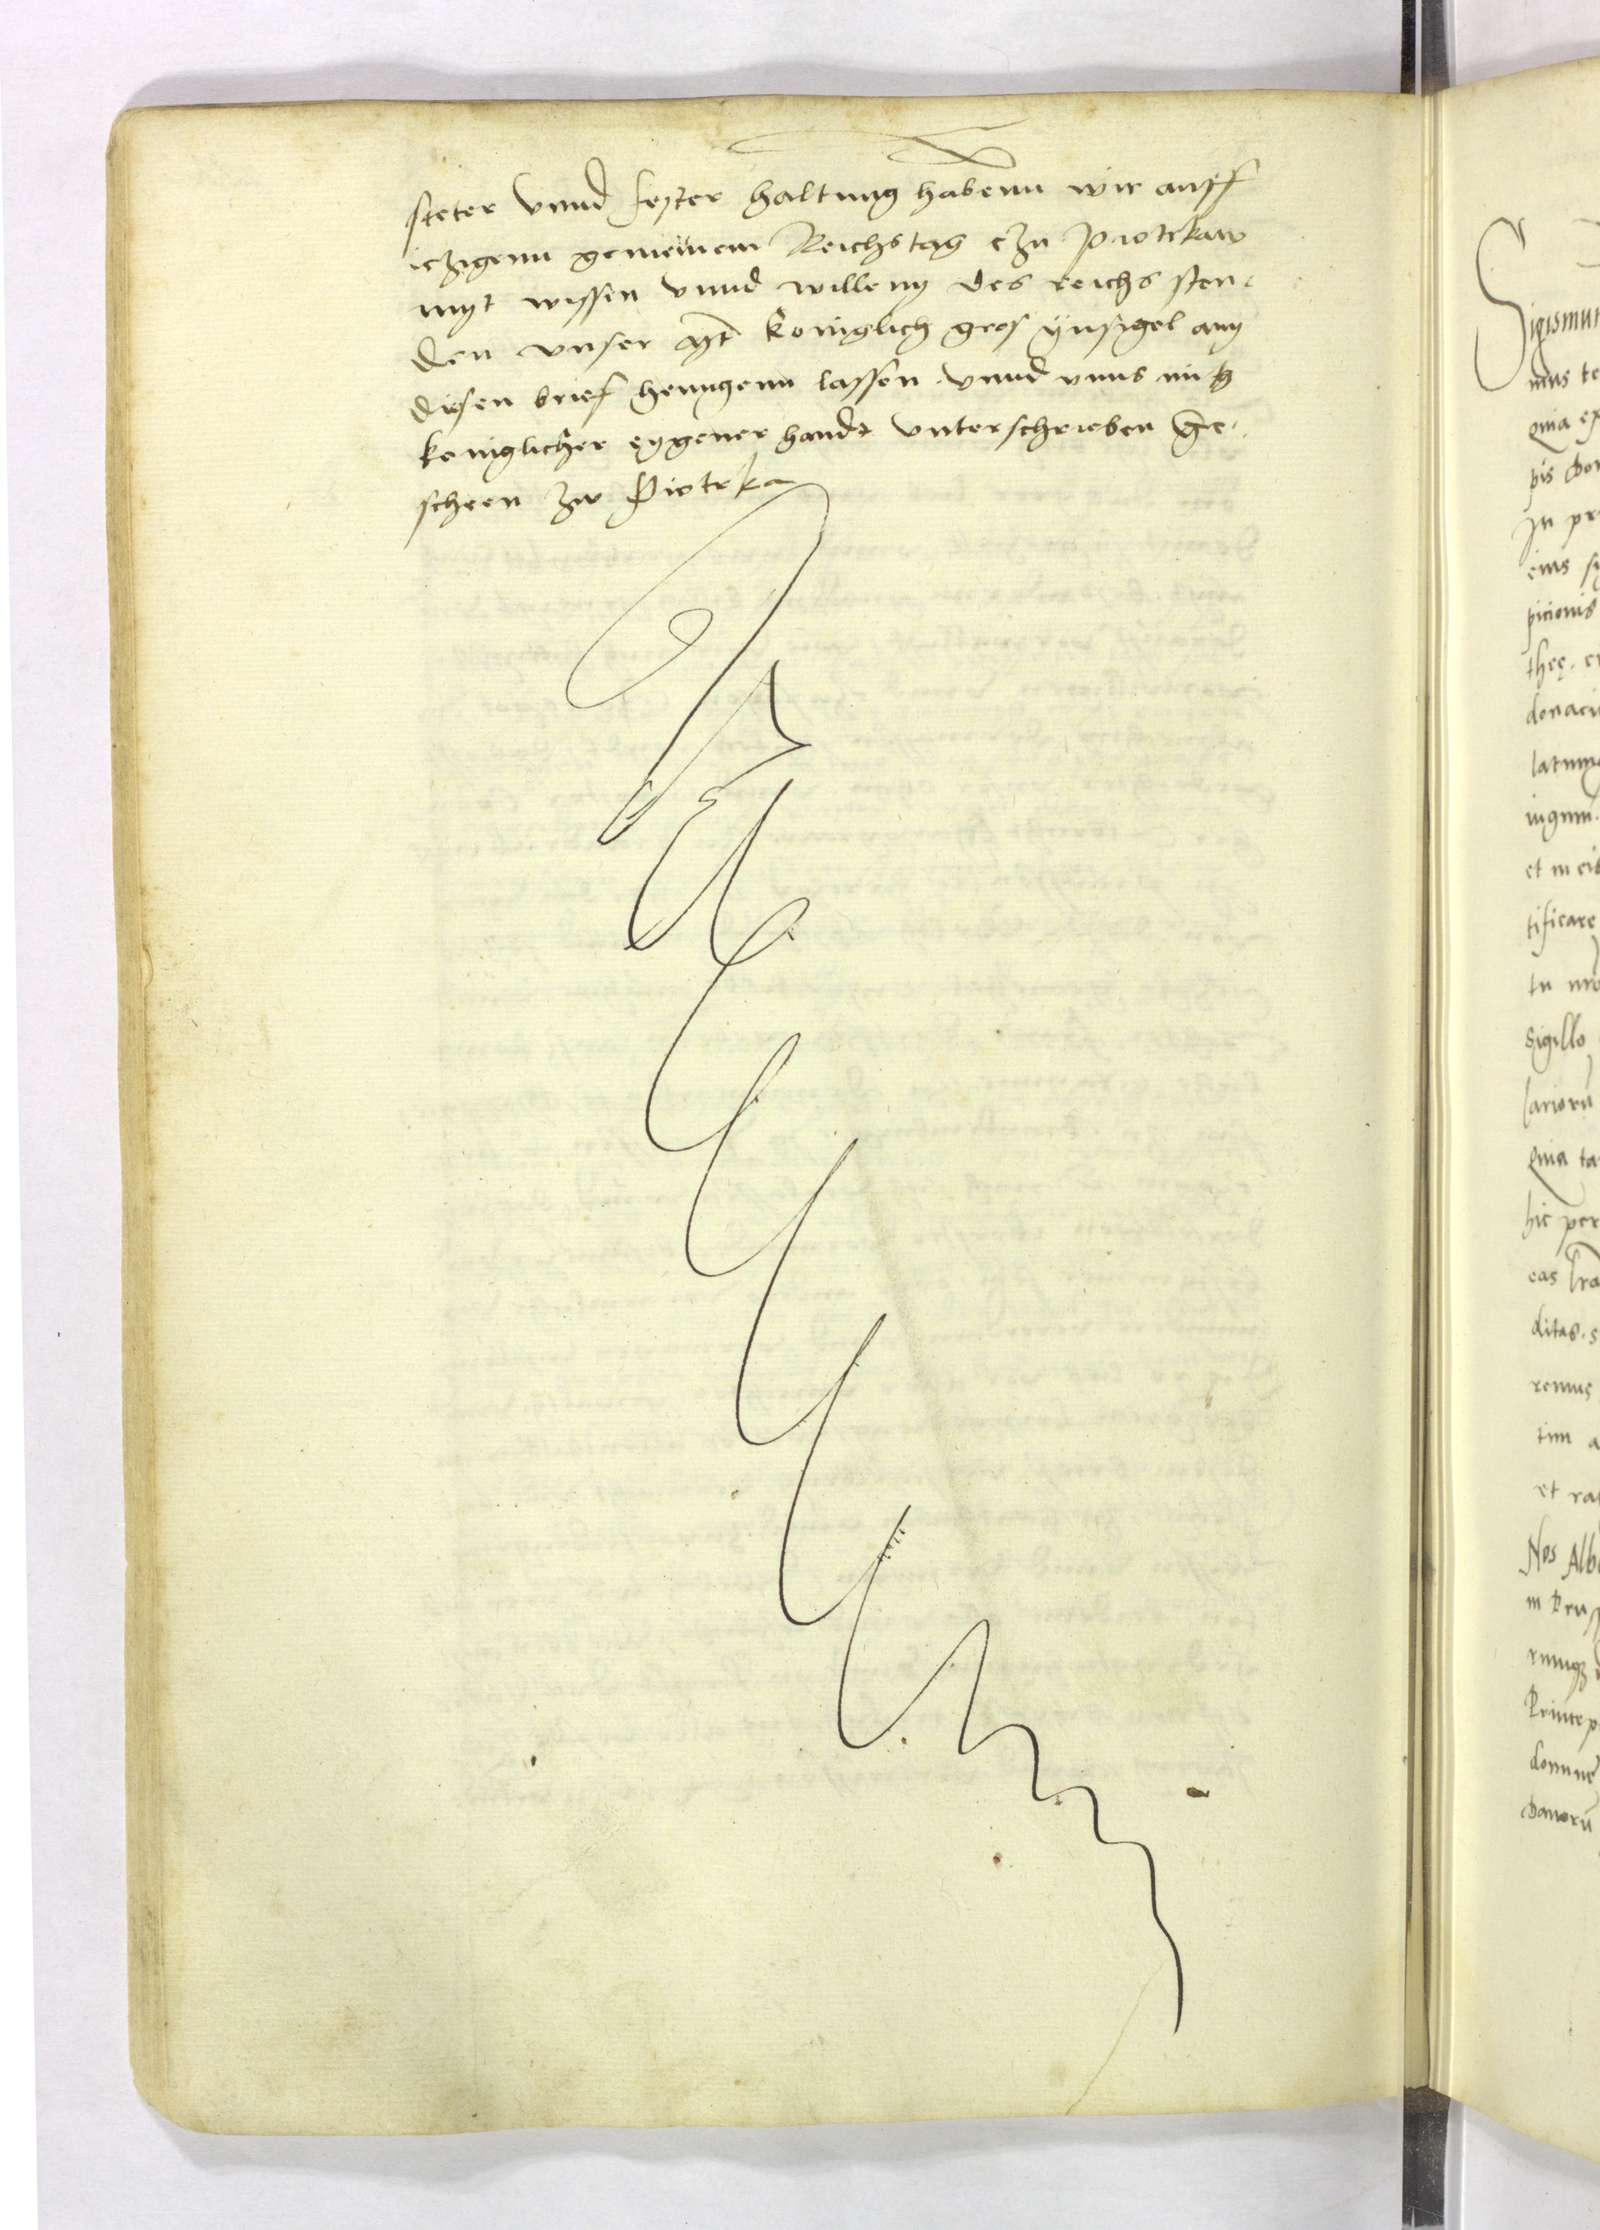 steter vnnd fester haltung habenn wir auff
iczigenn gemeinem Reichstag czu Piotrkaw
myt wissen vnnd willenn des reichs sten-
den vnser koniglich gros ynsigel an
diesen brief henngenn lassen vnnd vnns mit
koniglicher eygener handt vnterschrieben Ge-
scheen zw Piotrka
Sigismun
mus te
quia ex
pis
In pr
eius
picionis
donaci
latum
et in eis
tificare
tu
Sigillo
lariorum
quia ta
hic per
eas
ditas. s
remus
tim a
et rat
Nos Alb
in Prus
Princep